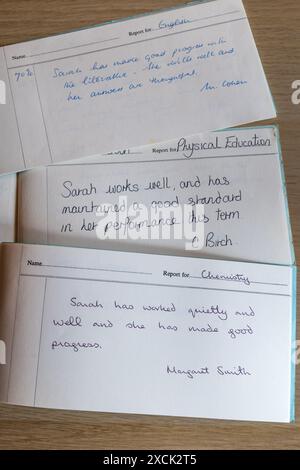 Name Report for English
70% Sarah has made good progress with
the literature. She writes well and
her answers are thoughtful.
Mr. Cohen
Report for Physical Education
Sarah works well, and has
maintained a good standard
in her performance this term
C Birch
Name Report for Chemistry
Sarah has worked quietly and
well and she has made good
progress.
Margaret Smith
alamy
Image ID: 2XCK2T5
www.alamy.com